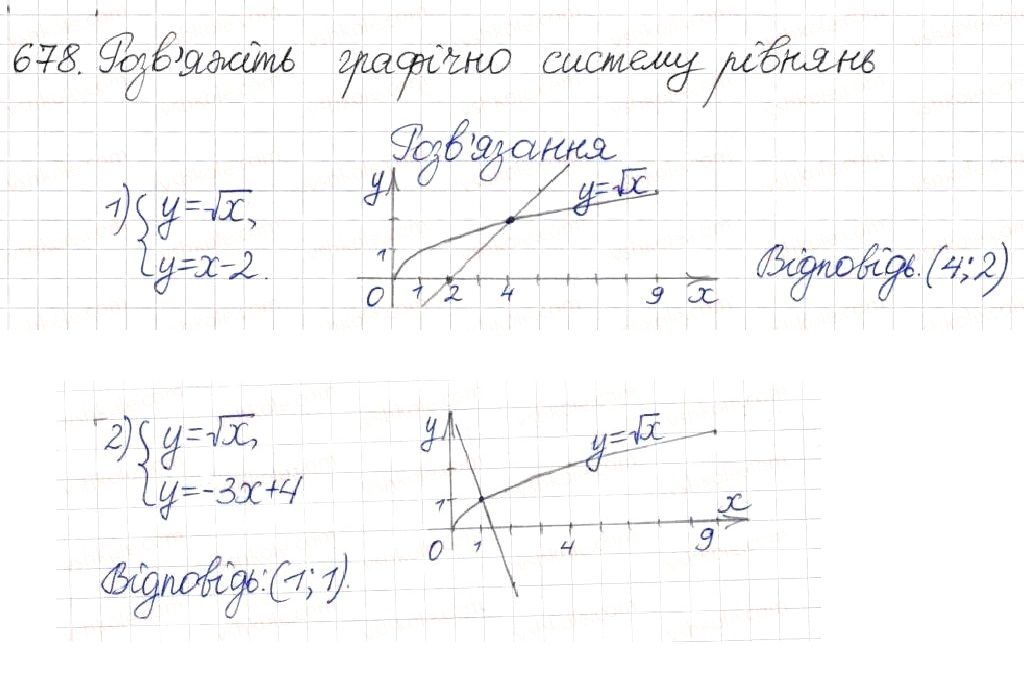 678. Розв'яжіть графічно систему рівнянь
Розв'язання
1) { y=√x,
y=x-2.
y
y=√x
1
0 1 2 4 9 x
Відповідь. (4;2)
2) { y=√x,
y=-3x+4
y
y=√x
1
x
0 1 4 9
Відповідь: (1;1).